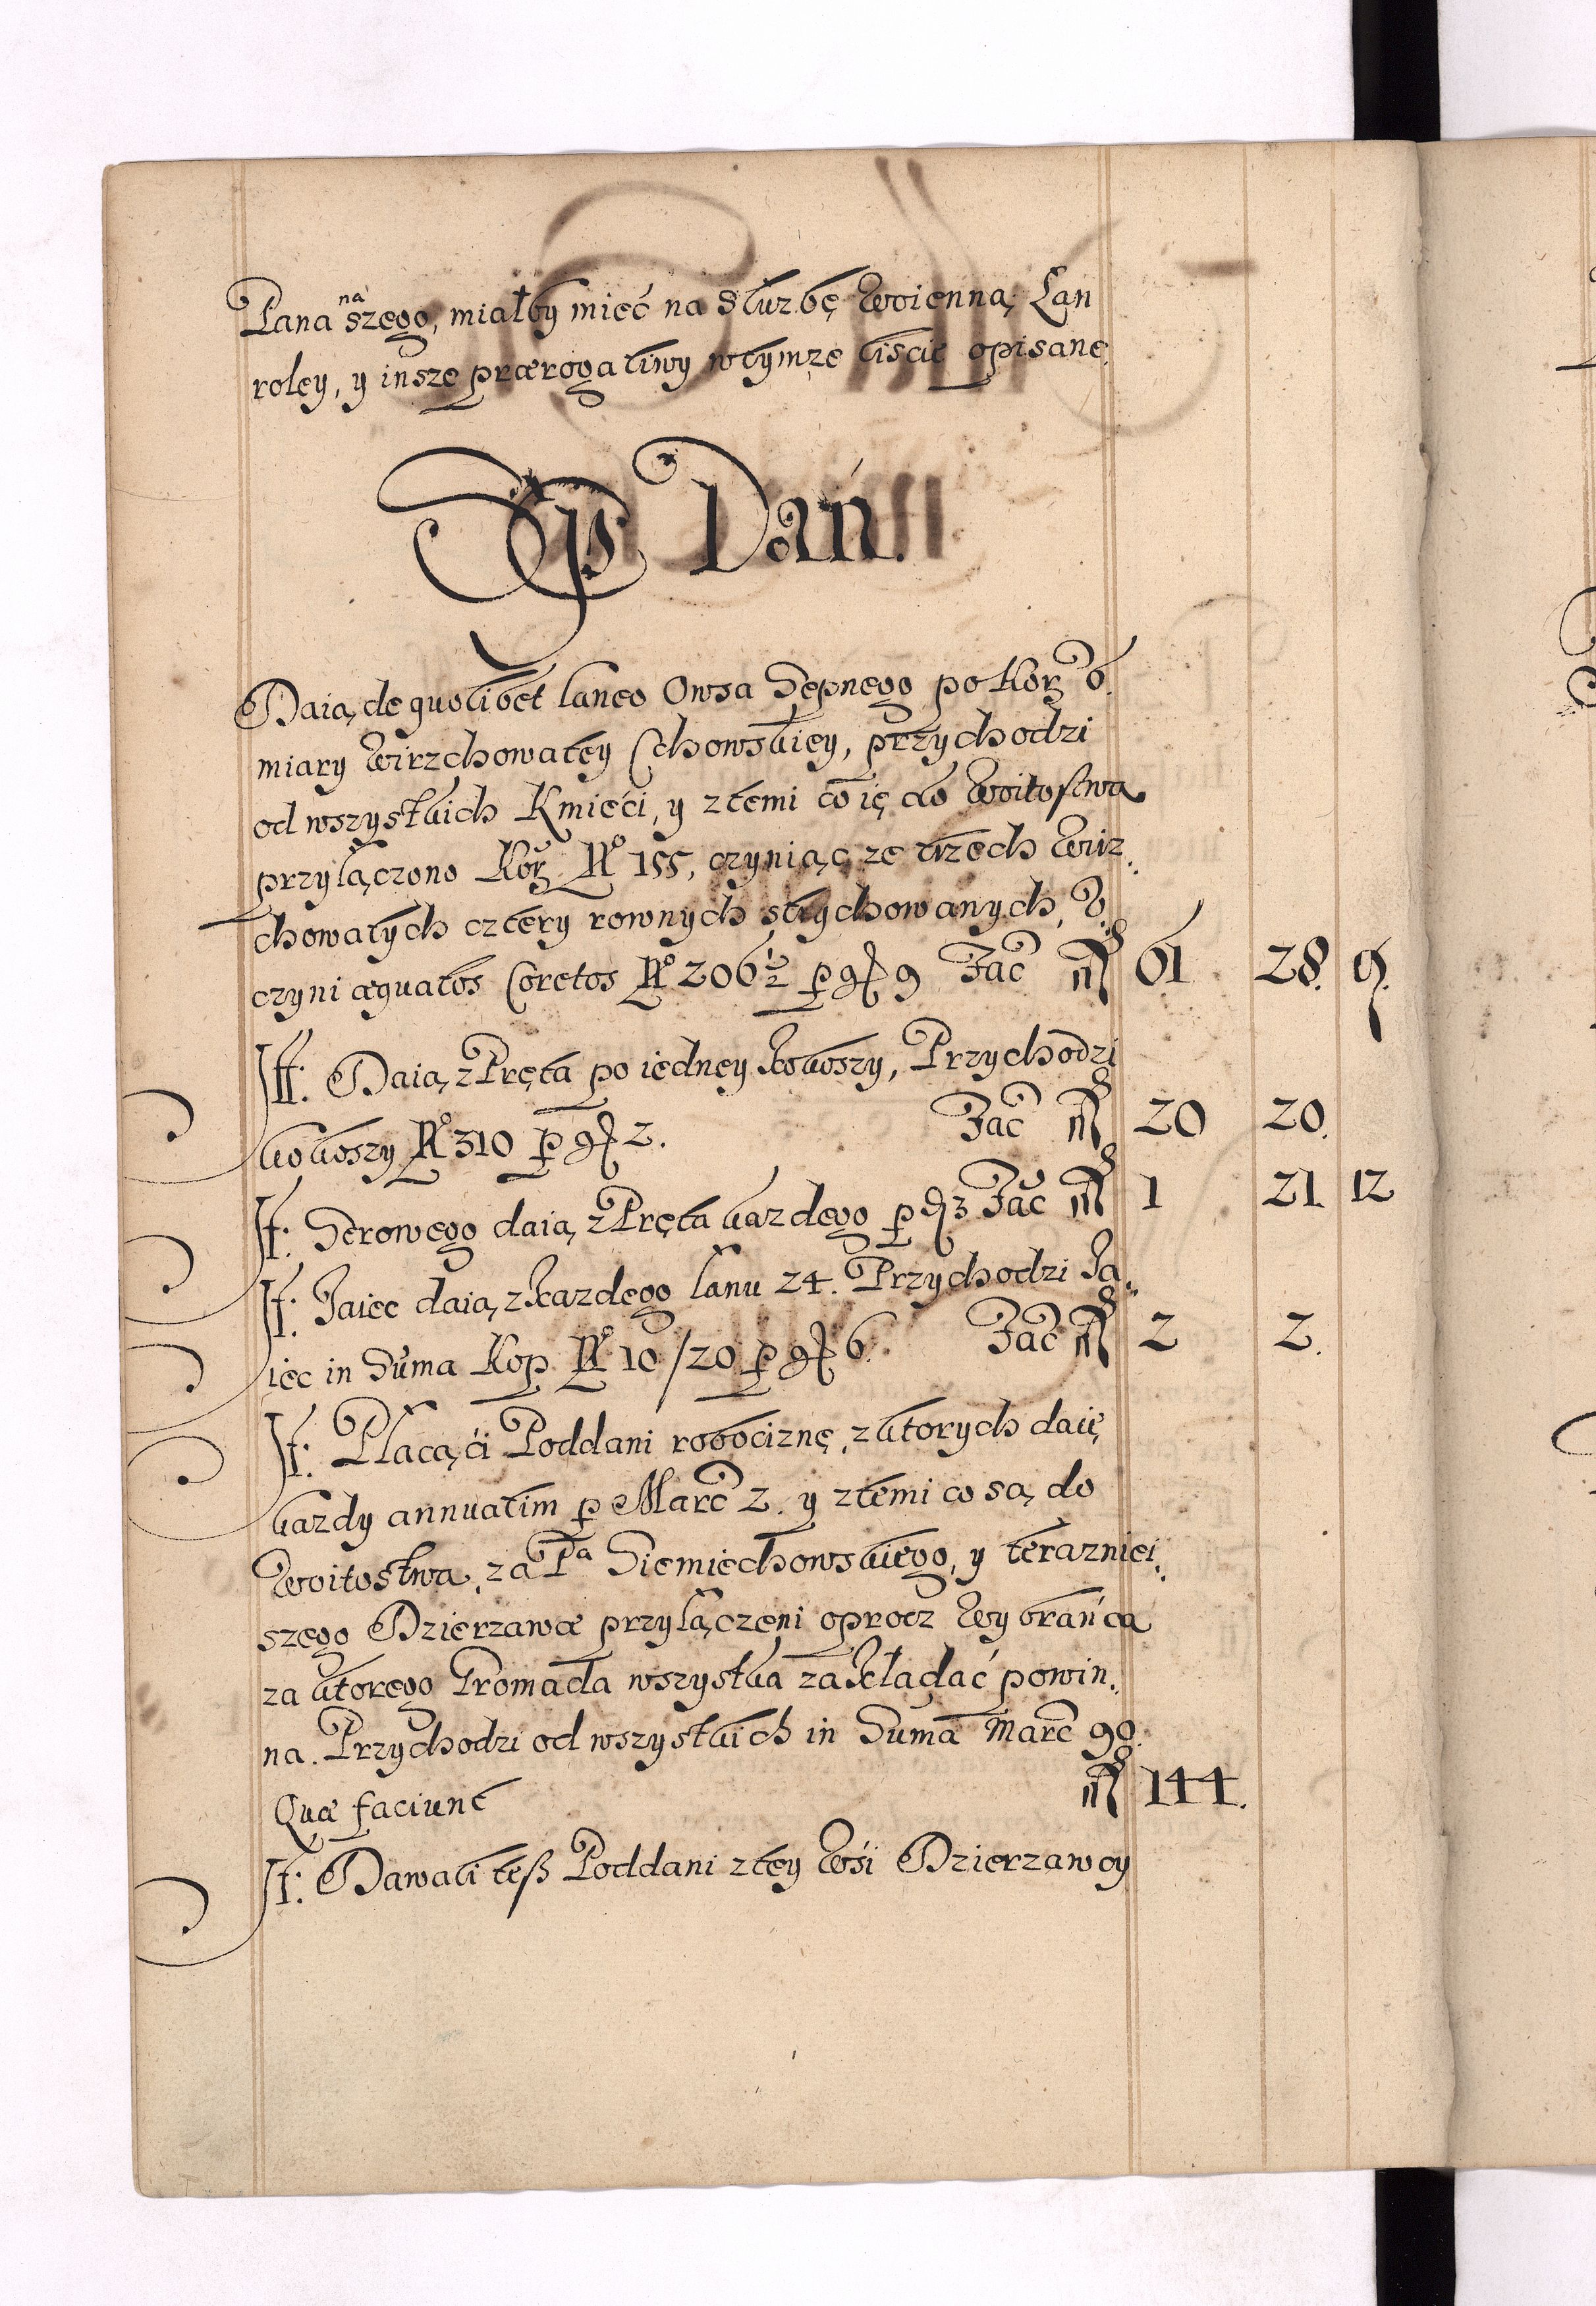 Pana naszego, miałby mieć na Służbę Woienną, Łan
roley, y insze prærogatiwy w tymże liście opisane.
Dań.
Daią de quolibet laneo Owsa Sępnego po Korz 6.
miary Wirzchowatey Czchowskiey, przychodzi
od wszystkich Kmieci, y z temi co ię do Woitostwa
przyłączono Korz No 155, czyniąc ze trzech Wirz.
chowatych cztery rownych strychowanych,
czyni æquatos Coretos No 206 1/2 p gr 9 Fac fl 61 28. 9.
It: Daią z Pręta po iedney kokoszy, Przychodzi
kokoszy No 310 p gr 2. Fac fl 20 20.
It: Serowego daią z Pręta kazdego p d 3 Fac fl 1 21 12
It: Jaiec daią z kazdego łanu 24. Przychodzi Ja.
iec in Suma Kop No 10/20 p gr 6. Fac fl 2 2.
It: Płacą ci Poddani robociznę, z ktorych daię
kazdy annuatim p Marc 2. y z temi co są do
Woitostwa, za Pa Siemiechowskiego, y terazniei.
szego Dzierzawcæ przyłączeni oprocz Wybrańca
za ktorego Gromada wszystka zakładać powin.
na. Przychodzi od wszystkich in Suma Marc 90.
Quæ faciunt fl 144.
It: Dawali teß Poddani z tey Wsi Dzierzawcy